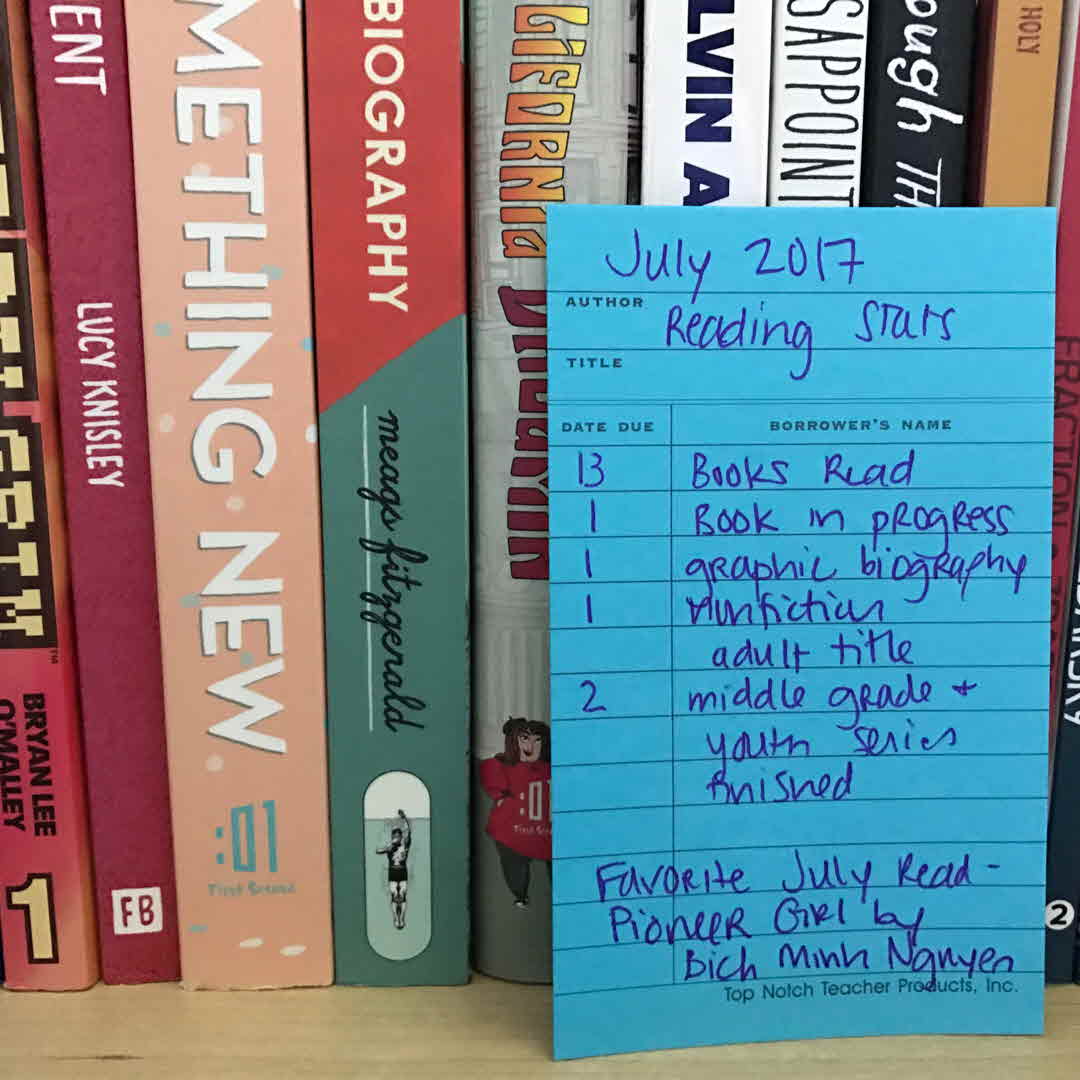 ENT
LUCY KNISLEY
FB
BRYAN LEE
O'MALLEY
1
METHING NEW
First Second
BIOGRAPHY
meags fitzgerald
LiFORNia
DREAMIN
First Second
LVIN A
SAPPOINT
ough TH
HOLY
2
July 2017
AUTHOR
Reading Stars
TITLE
DATE DUE BORROWER'S NAME
13 Books Read
1 Book in progress
1 graphic biography
1 nonfiction
adult title
2 middle grade +
youth series
finished
Favorite July Read -
Pioneer Girl by
Bich Minh Nguyen
Top Notch Teacher Products, Inc.